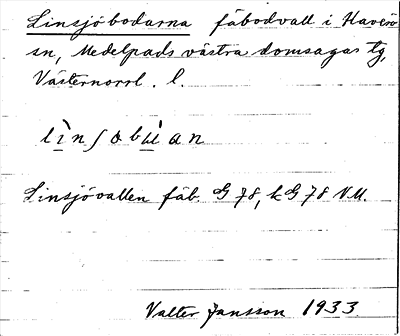 Linsjöbodarna fäbodvall i Haverö
sn, Medelpads västra domsagas tg,
Västernorrl. l.
lìnʃobùan
Linsjövallen fäb. G 78, k G 78 N.V.
Valter Jansson 1933.